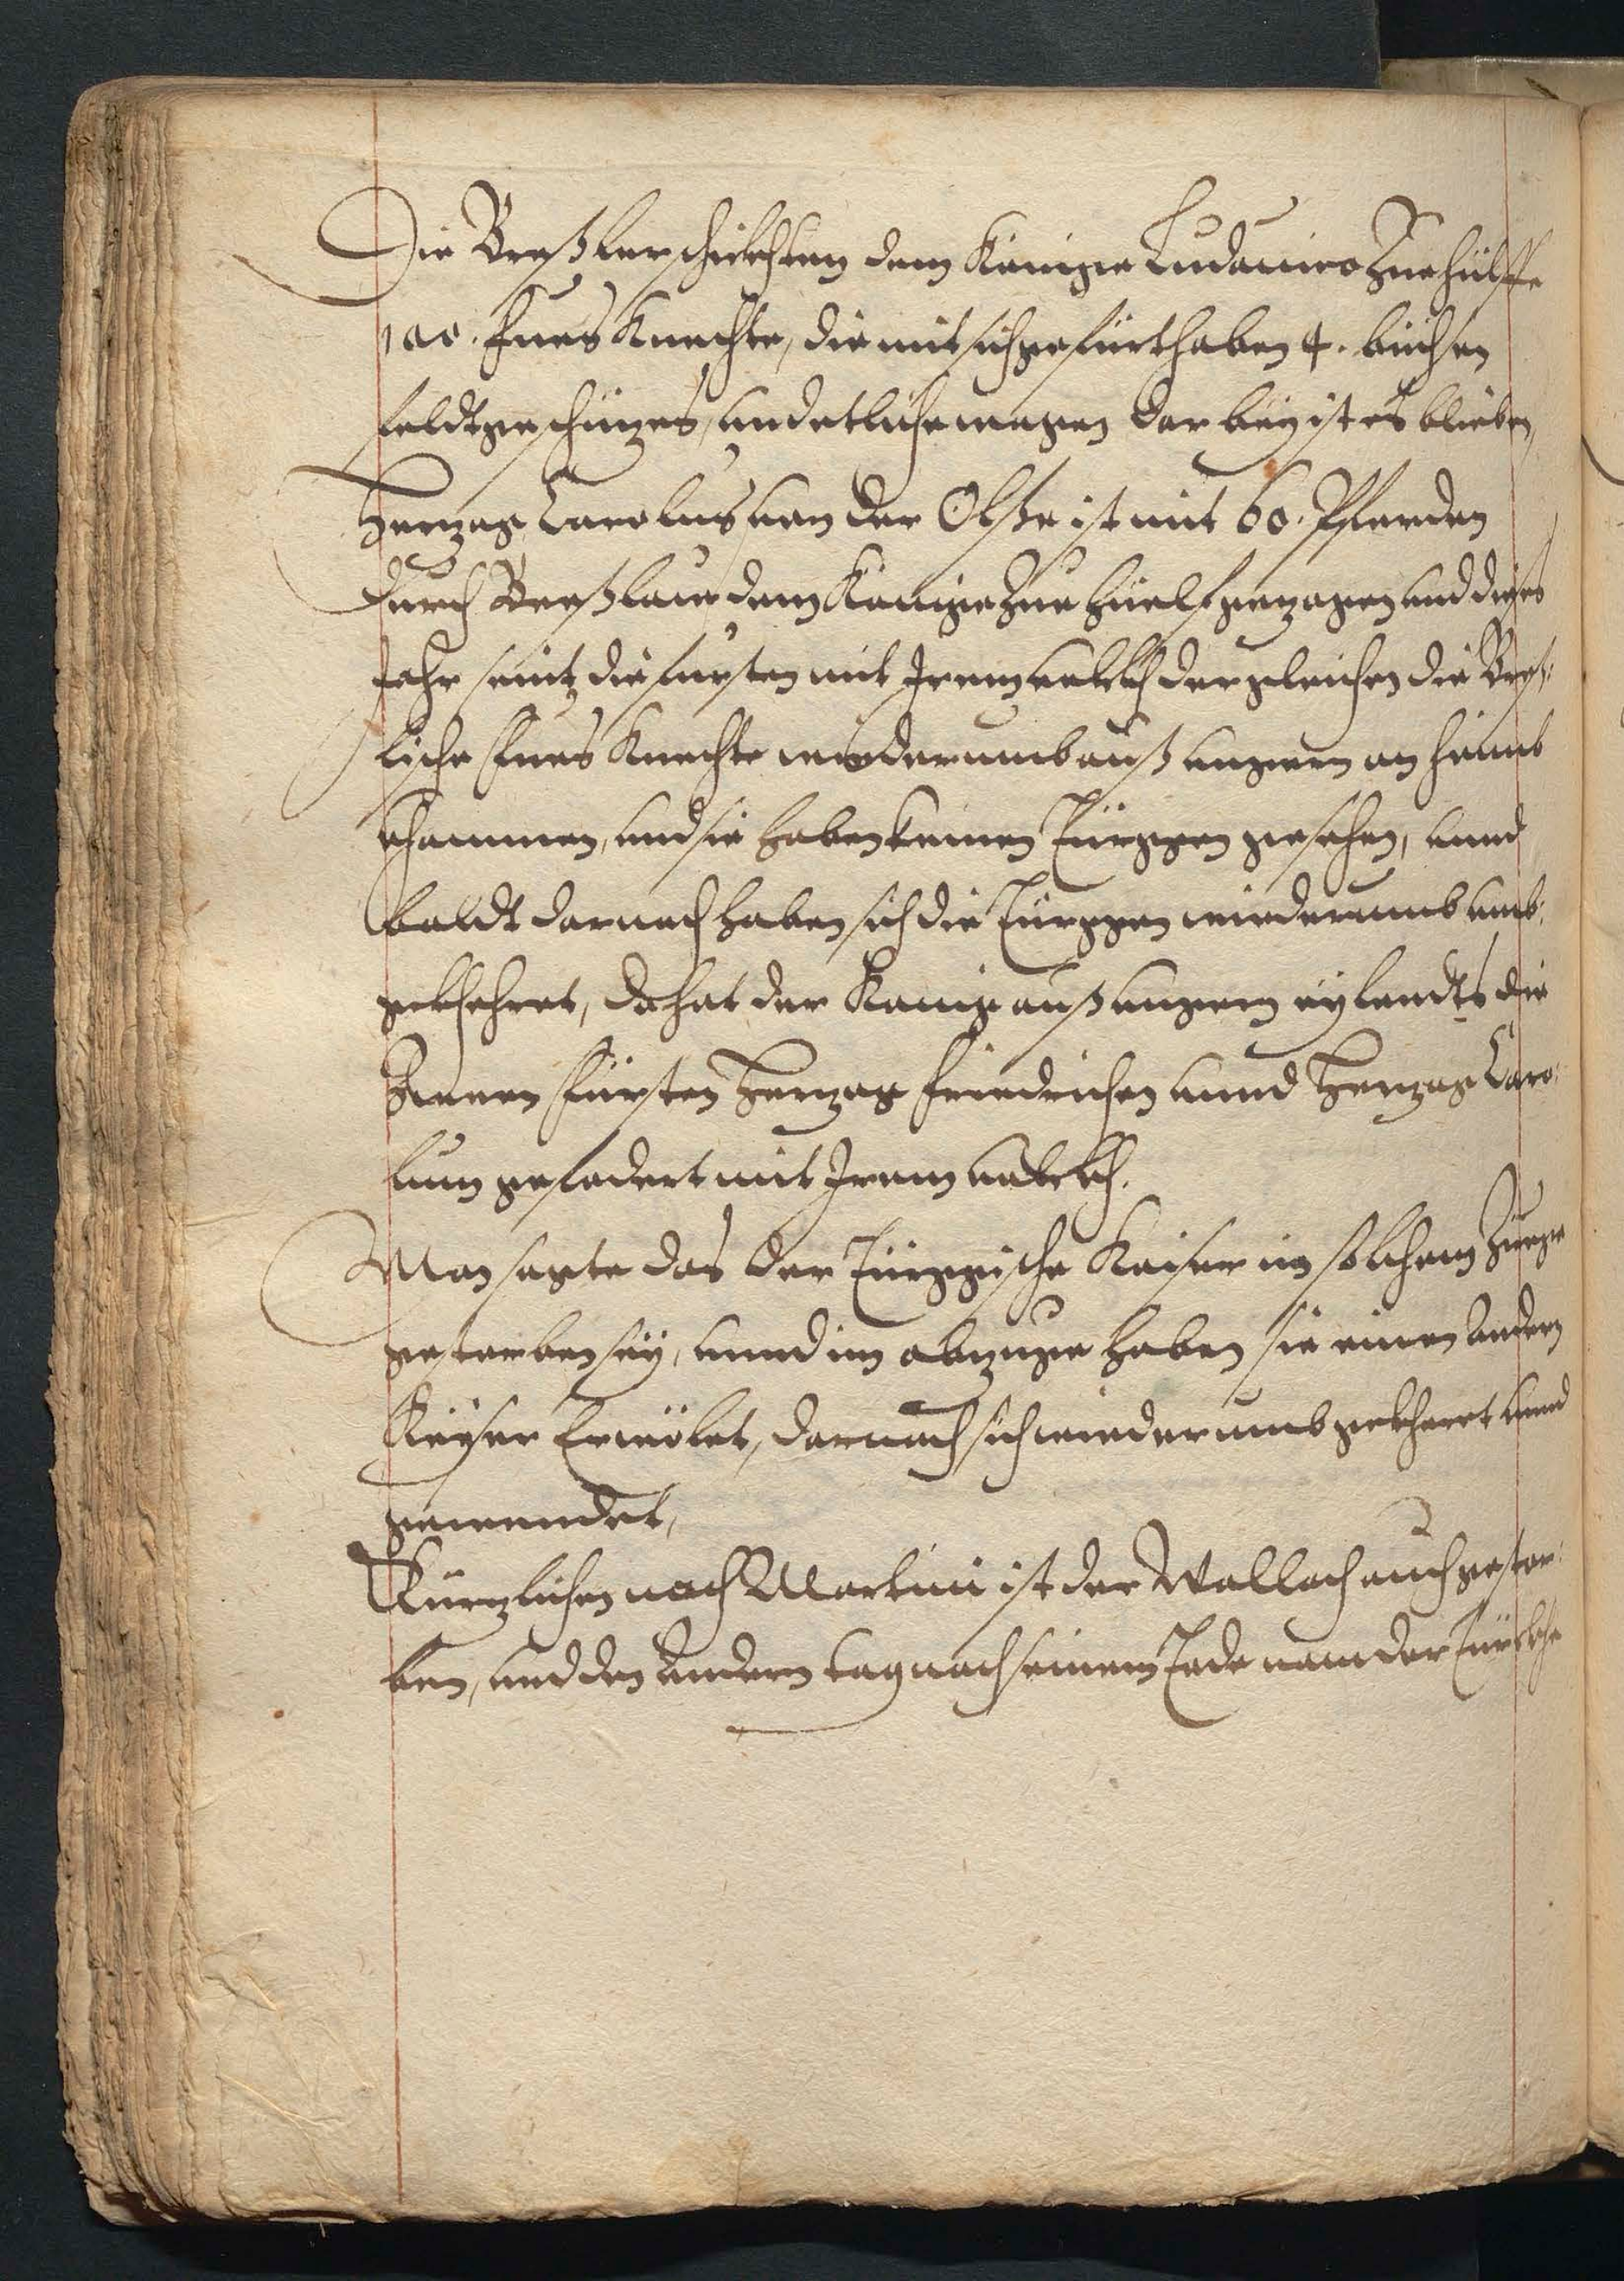 Die Breßler schickhten dem Könige Ludouico Zue hülffe
100. Fues Knechte, die mit sich gefürt haben 4. büchsen
feldtgeschützes, und etliche wagen dar bey ist es blieben,
Hertzog Carolus von der Olße ist mit 60. Pferden
durch Breßlaw dem Könige Zue hüelf gezogen und dieses
Jahr seint die fursten mit Irem volckh dergleichen die Breß:
lische Fues Knechte wiederumb auß ungern an heimb
khommen, und sie haben keinen Türggen gesehen, unnd
baldt darnach haben sich die Türggen wiederumb umb:
gekhehret, da hat der König auß ungern eylendts die
Zweene Fürsten Hertzog Friedrichen unnd Hertzog Caro:
lum gefodert mit Irem volckh.
Man sagte das der Türggische Kaiser in solchem Zuege
gestorben sey, unnd im abzuge haben sie einen Andern
Keyser Erwölet, darnach sich wiederumb gekheret unnd
gewendet,
Kürtzlichen nach Martini ist der Wallach auch gestor:
ben, und den Andern tag nach seinem Tode nam der Türckhe